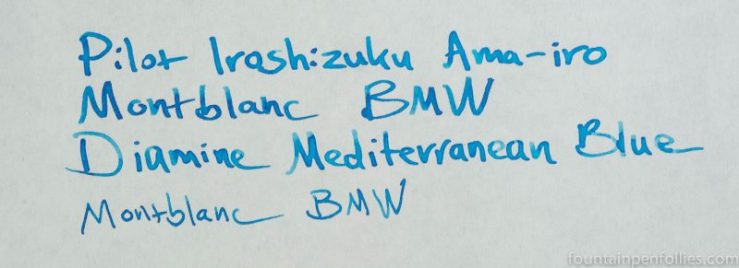 Pilot Iroshizuku Ama-iro
Montblanc BMW
Diamine Mediterranean Blue
Montblanc BMW
fountainpenfollies.com